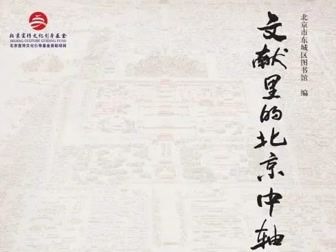 北京宣传文化引导基金
BEIJING CULTURE GUIDING FUND
北京宣传文化引导基金资助项目
北京市东城区图书馆 编
文献里的北京中轴